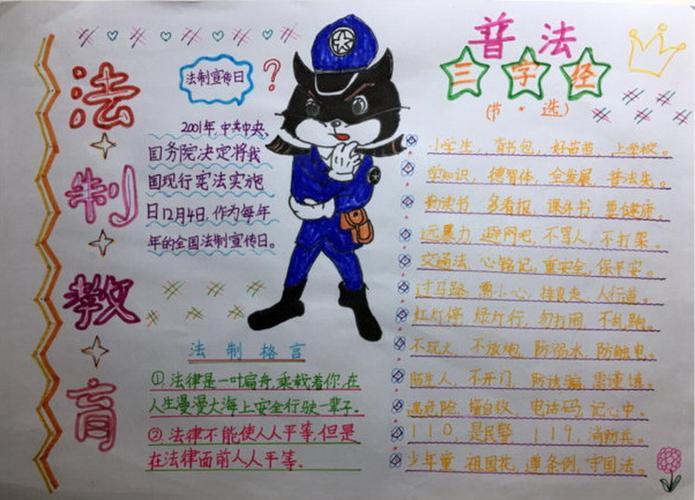 法制教育
法制宣传日
?
2001年,中共中央、
国务院决定将我
国现行宪法实施
日12月4日,作为每年
年的全国法制宣传日。
法制格言
①法律是一叶扁舟,乘载着你,在
人生漫漫大海上安全行驶一辈子。
②法律不能使人人平等,但是
在法律面前人人平等。
普法
三字经
(节·选)
小学生,背书包,好苗苗,上学校。
学知识,德智体,全发展,普法先。
勤读书,多看报,课外书,要健康。
远暴力,避网吧,不骂人,不打架。
交通法,心铭记,重安全,保平安。
过马路,需小心,排良走,人行道。
红灯停,绿灯行,勿打闹,不乱跑。
不玩火,不放炮,防溺水,防触电。
陌生人,不开门,防诱骗,需谨慎。
遇危险,懂自救,电话码,记心中。
110,是民警,119,消防兵。
少年童,祖国花,遵条例,守国法。